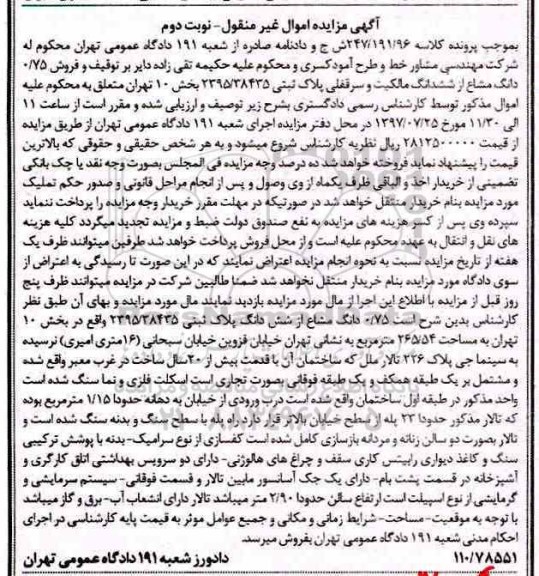 آگهی مزایده اموال غیر منقول- نوبت دوم
بموجب پرونده کلاسه ۲۴۷/۱۹۱/۹۶ش ج و دادنامه صادره از شعبه ۱۹۱ دادگاه عمومی تهران محکوم له
شرکت مهندسی مشاور خط و طرح آمودکسری و محکوم علیه حکیمه تقی زاده دایر بر توقیف و فروش ۰/۷۵
دانگ مشاع از ششدانگ مالکیت و سرقفلی پلاک ثبتی ۲۳۹۵/۳۸۴۳۵ بخش ۱۰ تهران متعلق به محکوم علیه
اموال مذکور توسط کارشناس رسمی دادگستری بشرح زیر توصیف و ارزیابی شده و مقرر است از ساعت ۱۱
الی ۱۱/۳۰ مورخ ۱۳۹۷/۰۷/۲۵ در محل دفتر مزایده اجرای شعبه ۱۹۱ دادگاه عمومی تهران از طریق مزایده
از قیمت ۲۸۱۲۵۰۰۰۰۰ ریال نظریه کارشناس شروع میشود و به هر شخص حقیقی و حقوقی که بالاترین
قیمت را پیشنهاد نماید فروخته خواهد شد ده درصد وجه مزایده فی المجلس بصورت وجه نقد یا چک بانکی
تضمینی از خریدار اخذ و الباقی ظرف یکماه از وی وصول و پس از انجام مراحل قانونی و صدور حکم تملیک
مورد مزایده بنام خریدار منتقل خواهد شد در صورتیکه در مهلت مقرر خریدار وجه مزایده را پرداخت ننماید
سپرده وی پس از کسر هزینه های مزایده به نفع صندوق دولت ضبط و مزایده تجدید میگردد کلیه هزینه
های نقل و انتقال به عهده محکوم علیه است و از محل فروش پرداخت خواهد شد طرفین میتوانند ظرف یک
هفته از تاریخ مزایده نسبت به نحوه انجام مزایده اعتراض نمایند که در این صورت تا رسیدگی به اعتراض از
سوی دادگاه مورد مزایده بنام خریدار منتقل نخواهد شد ضمنا طالبین شرکت در مزایده میتوانند ظرف پنج
روز قبل از مزایده با اطلاع این اجرا از مال مورد مزایده بازدید نمایند مال مورد مزایده و بهای آن طبق نظر
کارشناس بدین شرح است ۰/۷۵ دانگ مشاع از شش دانگ پلاک ثبتی ۲۳۹۵/۳۸۴۳۵ واقع در بخش ۱۰
تهران به مساحت ۲۶۵/۵۴ مترمربع به نشانی تهران خیابان قزوین خیابان سبحانی (۱۶متری امیری) نرسیده
به سینما جی پلاک ۲۲۶ تالار ملل که ساختمان آن با قدمت بیش از ۲۰سال ساخت در غرب معبر واقع شده
و مشتمل بر یک طبقه همکف و یک طبقه فوقانی بصورت تجاری است اسکلت فلزی و نما سنگ شده است
واحد مذکور در طبقه اول ساختمان واقع شده است درب ورودی از خیابان به دهانه حدودا ۱/۱۵ مترمربع بوده
که تالار مذکور حدودا ۲۳ پله از سطح خیابان بالاتر قرار دارد راه پله با سطح سنگ و بدنه سنگ شده است و
تالار بصورت دو سالن زنانه و مردانه بازسازی کامل شده است کفسازی از نوع سرامیک- بدنه با پوشش ترکیبی
سنگ و کاغذ دیواری رابیتس کاری سقف و چراغ های هالوژنی- دارای دو سرویس بهداشتی اتاق کارگری و
آشپزخانه در قسمت پشت بام- دارای یک جک آسانسور مابین تالار و قسمت فوقانی- سیستم سرمایشی و
گرمایشی از نوع اسپیلت است ارتفاع سالن حدودا ۲/۹۰ متر میباشد تالار دارای انشعاب آب- برق و گاز میباشد
با توجه به موقعیت- مساحت- شرایط زمانی و مکانی و جمیع عوامل موثر به قیمت پایه کارشناسی در اجرای
احکام مدنی شعبه ۱۹۱ دادگاه عمومی تهران بفروش میرسد.
۱۱۰/۷۸۵۵۱ دادورز شعبه ۱۹۱ دادگاه عمومی تهران